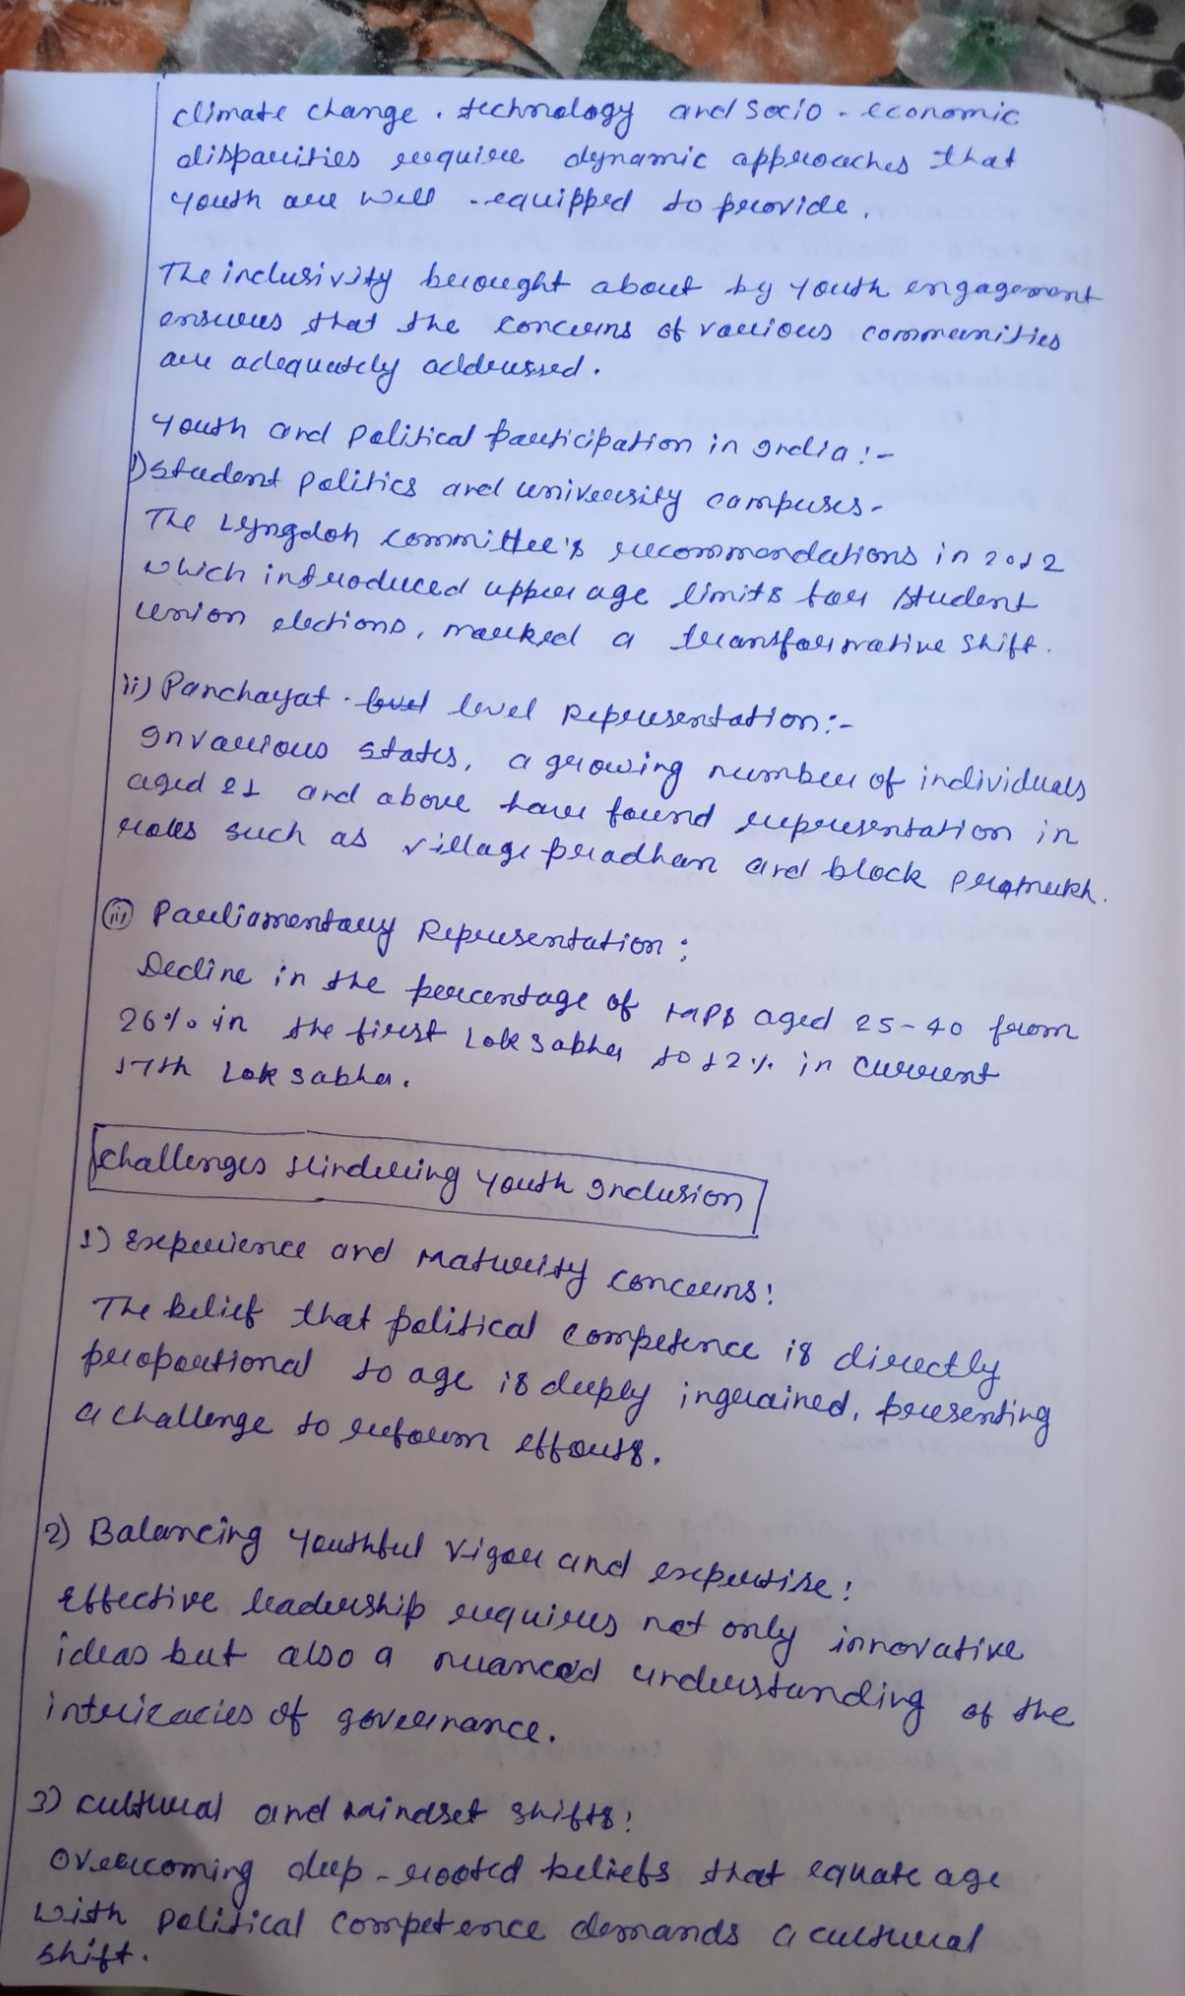 climate change. technology and socio-economic
disparities require dynamic approaches that
youth are well-equipped to provide.
The inclusivity brought about by youth engagement
ensures that the concerns of various communities
are adequately addressed.
Youth and political participation in India:-
i) Student politics and university campuses-
The Lyngdoh committee's recommendations in 2012
which introduced upper age limits for student
union elections, marked a transformative shift.
ii) Panchayat-level level Representation:-
In various states, a growing number of individuals
aged 21 and above have found representation in
roles such as village pradhan and block pramukh.
iii) Parliamentary Representation:
Decline in the percentage of MPs aged 25-40 from
26% in the first Lok Sabha to 12% in current
17th Lok sabha.
Challenges Hindering Youth Inclusion
1) Experience and Maturity concerns:
The belief that political competence is directly
proportional to age is deeply ingrained, presenting
a challenge to reform efforts.
2) Balancing youthful vigor and expertise:
Effective leadership requires not only innovative
ideas but also a nuanced understanding of the
intricacies of governance.
3) Cultural and Mindset shifts:
Overcoming deep-rooted beliefs that equate age
with political competence demands a cultural
shift.